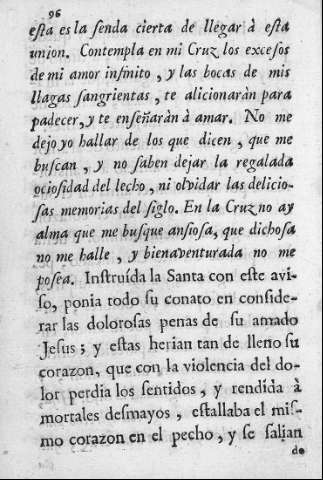 96
esta es la senda cierta de llegar à esta
union. Contempla en mi Cruz los excesos
de mi amor infinito, y las bocas de mis
llagas sangrientas, te alicionaràn para
padecer, y te enseñaràn à amar. No me
dejo yo hallar de los que dicen, que me
buscan, y no saben dejar la regalada
ociosidad del lecho, ni olvidar las delicio-
sas memorias del siglo. En la Cruz no ay
alma que me busque ansiosa, que dichosa
no me halle, y bienaventurada no me
posea. Instruída la Santa con este avi-
so, ponia todo su conato en conside-
rar las dolorosas penas de su amado
Jesus; y estas herian tan de lleno su
corazon, que con la violencia del do-
lor perdia los sentidos, y rendida à
mortales desmayos, estallaba el mis-
mo corazon en el pecho, y se salian
de